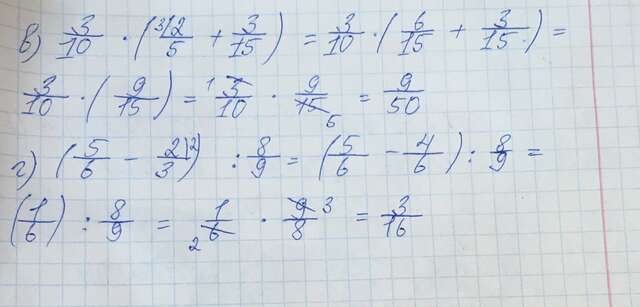 в) 3/10 · (³⁾2/5 + 3/15) = 3/10 · (6/15 + 3/15) =
3/10 · (9/15) = ¹3/10 · 9/15₅ = 9/50
г) (5/6 - 2/3⁽²) : 8/9 = (5/6 - 4/6) : 8/9 =
(1/6) : 8/9 = 1/₂6 · 9³/8 = 3/16